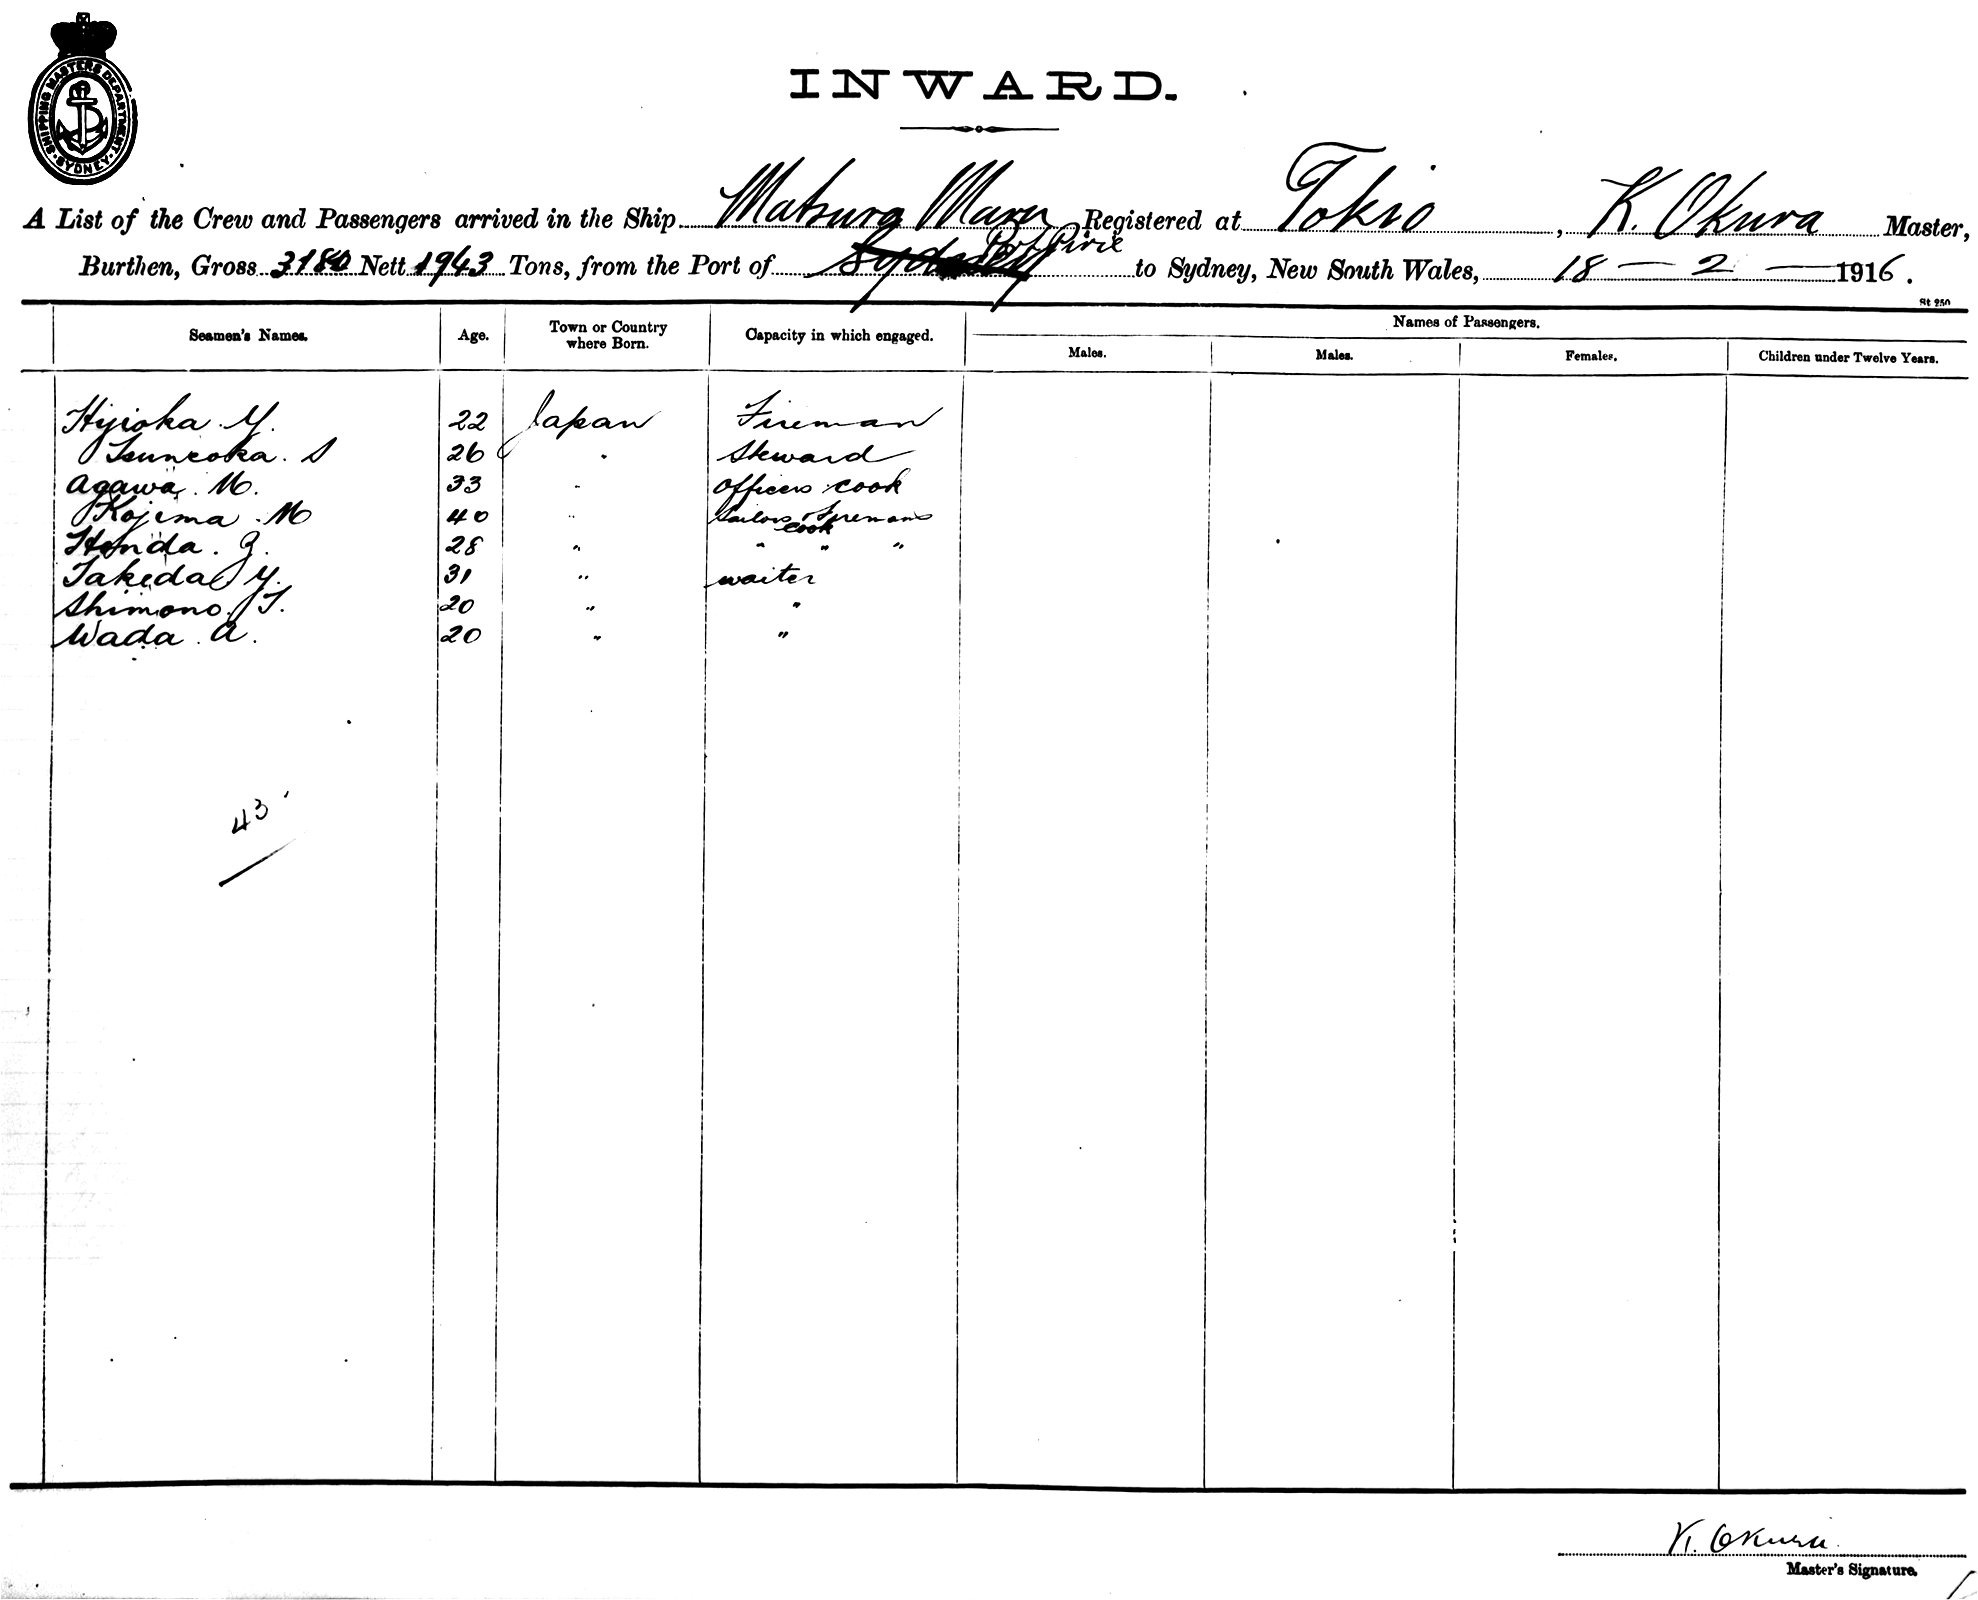 SHIPPING MASTERS DEPARTMENT. SYDNEY
INWARD.
A List of the Crew and Passengers arrived in the Ship Matsura Maru Registered at Tokio, K. Okura Master,
Burthen, Gross 3180 Nett 1943 Tons, from the Port of Sydney Port Pirie to Sydney, New South Wales, 18 - 2 - 1916.
St 250
Seamen's Names. Age. Town or Country where Born. Capacity in which engaged. Names of Passengers.
Males. Males. Females. Children under Twelve Years.
Hijioka. Y. 22 Japan Fireman
Tsuneoka. S 26 " Steward
Agawa. M. 33 " Officers cook
Kojima. M 40 " Sailors & Firemans cook
Honda. Z. 28 " " " "
Takeda Y. 31 " waiter
Shimono. T. 20 " "
Wada. A. 20 " "
43
K. Okura
Master's Signature.